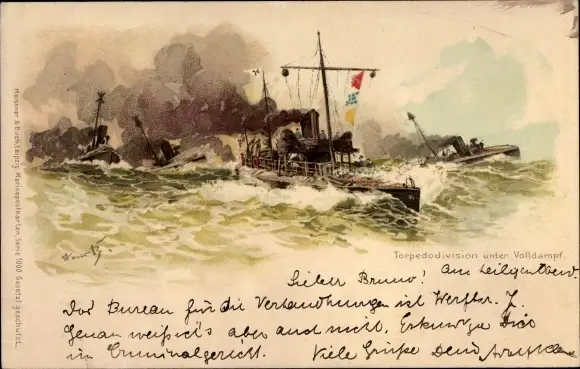 Meissner & Buch, Leipzig. Marinepostkarten, Serie 1000 Gesetzl. geschützt.
Torpedodivision unter Volldampf.
Lieber Bruno! Am heiligen Abend.
Das Bureau für die Verhandlungen ist Werftstr. 7.
Genau weiß ich's aber auch nicht. Erkundige Dich
im Criminalgericht. Viele Grüße Dein